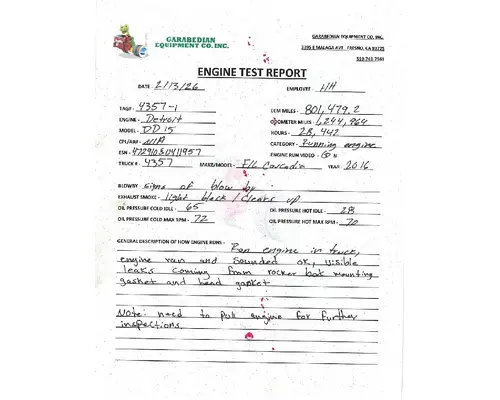 GARABEDIAN
EQUIPMENT CO. INC.
GARABEDIAN EQUIPMENT CO, INC.
E MALAGA AVE, FRESNO, CA 93725
ENGINE TEST REPORT
DATE - 2/13/26 EMPLOYEE - HH
ENG# - 4357-1 ECM MILES - 801,479.2
ENGINE - Detroit ODOMETER MILES - 1,244,964
MODEL - DD15 HOURS - 28,442
CPL/ARR - N/A CATEGORY - running engine
ESN - 472910S0411957 ENGINE RUN VIDEO - Y N
TRUCK # - 4357 MAKE/MODEL - F/L Cascadia YEAR - 2016
BLOWBY - signs of blow by
EXHAUST SMOKE - light black / clears up
OIL PRESSURE COLD IDLE - 65 OIL PRESSURE HOT IDLE - 28
OIL PRESSURE COLD MAX RPM - 72 OIL PRESSURE HOT MAX RPM - 70
GENERAL DESCRIPTION OF HOW ENGINE RUNS - Ran engine in truck,
engine ran and sounded ok, visible
leaks coming from rocker book mounting
gasket and head gasket
Note: need to pull engine for further
inspections.